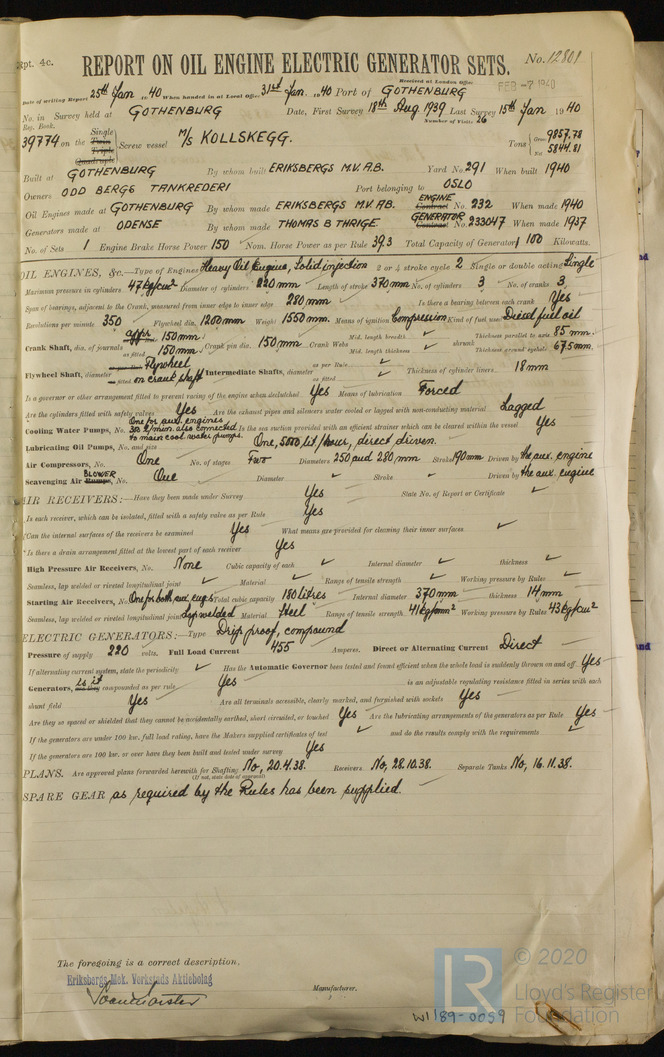 Rpt. 4c.
REPORT ON OIL ENGINE ELECTRIC GENERATOR SETS.
No. 12801
Received at London Office FEB -7 1940
Date of writing Report 25th Jan 1940 When handed in at Local Office 31st Jan. 1940 Port of GOTHENBURG
No. in Survey held at GOTHENBURG Date, First Survey 18th Aug 1939 Last Survey 15th Jan 1940
Reg. Book. Number of Visits 26
39774 on the Single Twin Triple Quadruple Screw vessel M/s KOLLSKEGG. Tons Gross 9857.78 Net 5844.81
Built at GOTHENBURG By whom built ERIKSBERGS M.V. A.B. Yard No. 291 When built 1940
Owners ODD BERGS TANKREDERI Port belonging to OSLO
Oil Engines made at GOTHENBURG By whom made ERIKSBERGS M.V. AB. ENGINE Contract No. 232 When made 1940
Generators made at ODENSE By whom made THOMAS B THRIGE. GENERATOR Contract No. 233047 When made 1937
No. of Sets 1 Engine Brake Horse Power 150 Nom. Horse Power as per Rule 39.3 Total Capacity of Generator 100 Kilowatts.
OIL ENGINES, &c.—Type of Engines Heavy Oil Engine, Solid injection 2 or 4 stroke cycle 2 Single or double acting Single
Maximum pressure in cylinders 47 kg/cm² Diameter of cylinders 220 mm Length of stroke 370 mm No. of cylinders 3 No. of cranks 3
Span of bearings, adjacent to the Crank, measured from inner edge to inner edge 280 mm Is there a bearing between each crank Yes
Revolutions per minute 350 Flywheel dia. 1200 mm Weight 1550 mm. Means of ignition Compression Kind of fuel used Diesel fuel oil
Crank Shaft, dia. of journals appr. 150 mm. as fitted 150 mm. Crank pin dia. 150 mm Crank Webs Mid. length breadth ✓ Mid. length thickness ✓ shrunk Thickness parallel to axis 85 mm. Thickness around eyehole 67.5 mm.
Flywheel Shaft, diameter as per Rule as fitted Flywheel on crank shaft Intermediate Shafts, diameter as per Rule ✓ as fitted ✓ Thickness of cylinder liners 18 mm
Is a governor or other arrangement fitted to prevent racing of the engine when declutched Yes Means of lubrication Forced
Are the cylinders fitted with safety valves Yes Are the exhaust pipes and silencers water cooled or lagged with non-conducting material Lagged
Cooling Water Pumps, No. One for aux. engines also connected to main cool. water pumps. Is the sea suction provided with an efficient strainer which can be cleared within the vessel Yes
Lubricating Oil Pumps, No. and size One, 5000 lit/hour, direct driven.
Air Compressors, No. One No. of stages Two Diameters 250 and 280 mm Stroke 190 mm Driven by the aux. engine
Scavenging Air BLOWER Pumps, No. One Diameter ✓ Stroke ✓ Driven by the aux. engine
AIR RECEIVERS:—Have they been made under Survey Yes State No. of Report or Certificate ✓
Is each receiver, which can be isolated, fitted with a safety valve as per Rule Yes
Can the internal surfaces of the receivers be examined Yes What means are provided for cleaning their inner surfaces ✓
Is there a drain arrangement fitted at the lowest part of each receiver Yes
High Pressure Air Receivers, No. None Cubic capacity of each ✓ Internal diameter ✓ thickness ✓
Seamless, lap welded or riveted longitudinal joint ✓ Material ✓ Range of tensile strength ✓ Working pressure by Rules ✓
Starting Air Receivers, No. One for both aux. engs. Total cubic capacity 180 litres Internal diameter 370 mm thickness 14 mm
Seamless, lap welded or riveted longitudinal joint Lap welded Material Steel Range of tensile strength 41 kg/mm² Working pressure by Rules 43 kg/cm²
ELECTRIC GENERATORS:—Type Drip proof, compound
Pressure of supply 220 volts. Full Load Current 455 Amperes. Direct or Alternating Current Direct
If alternating current system, state the periodicity ✓ Has the Automatic Governor been tested and found efficient when the whole load is suddenly thrown on and off Yes
Generators, is it are they compounded as per rule Yes is an adjustable regulating resistance fitted in series with each
shunt field Yes Are all terminals accessible, clearly marked, and furnished with sockets Yes
Are they so spaced or shielded that they cannot be accidentally earthed, short circuited, or touched Yes Are the lubricating arrangements of the generators as per Rule Yes
If the generators are under 100 kw. full load rating, have the Makers supplied certificates of test ✓ and do the results comply with the requirements ✓
If the generators are 100 kw. or over have they been built and tested under survey Yes
PLANS. Are approved plans forwarded herewith for Shafting No, 20.4.38. Receivers No, 28.10.38. Separate Tanks No, 16.11.38.
(If not, state date of approval)
SPARE GEAR as required by the Rules has been supplied.
The foregoing is a correct description,
Eriksbergs Mek. Verkstads Aktiebolag
Manufacturer.
W1189-0059
LR
© 2020
Lloyd's Register
Foundation